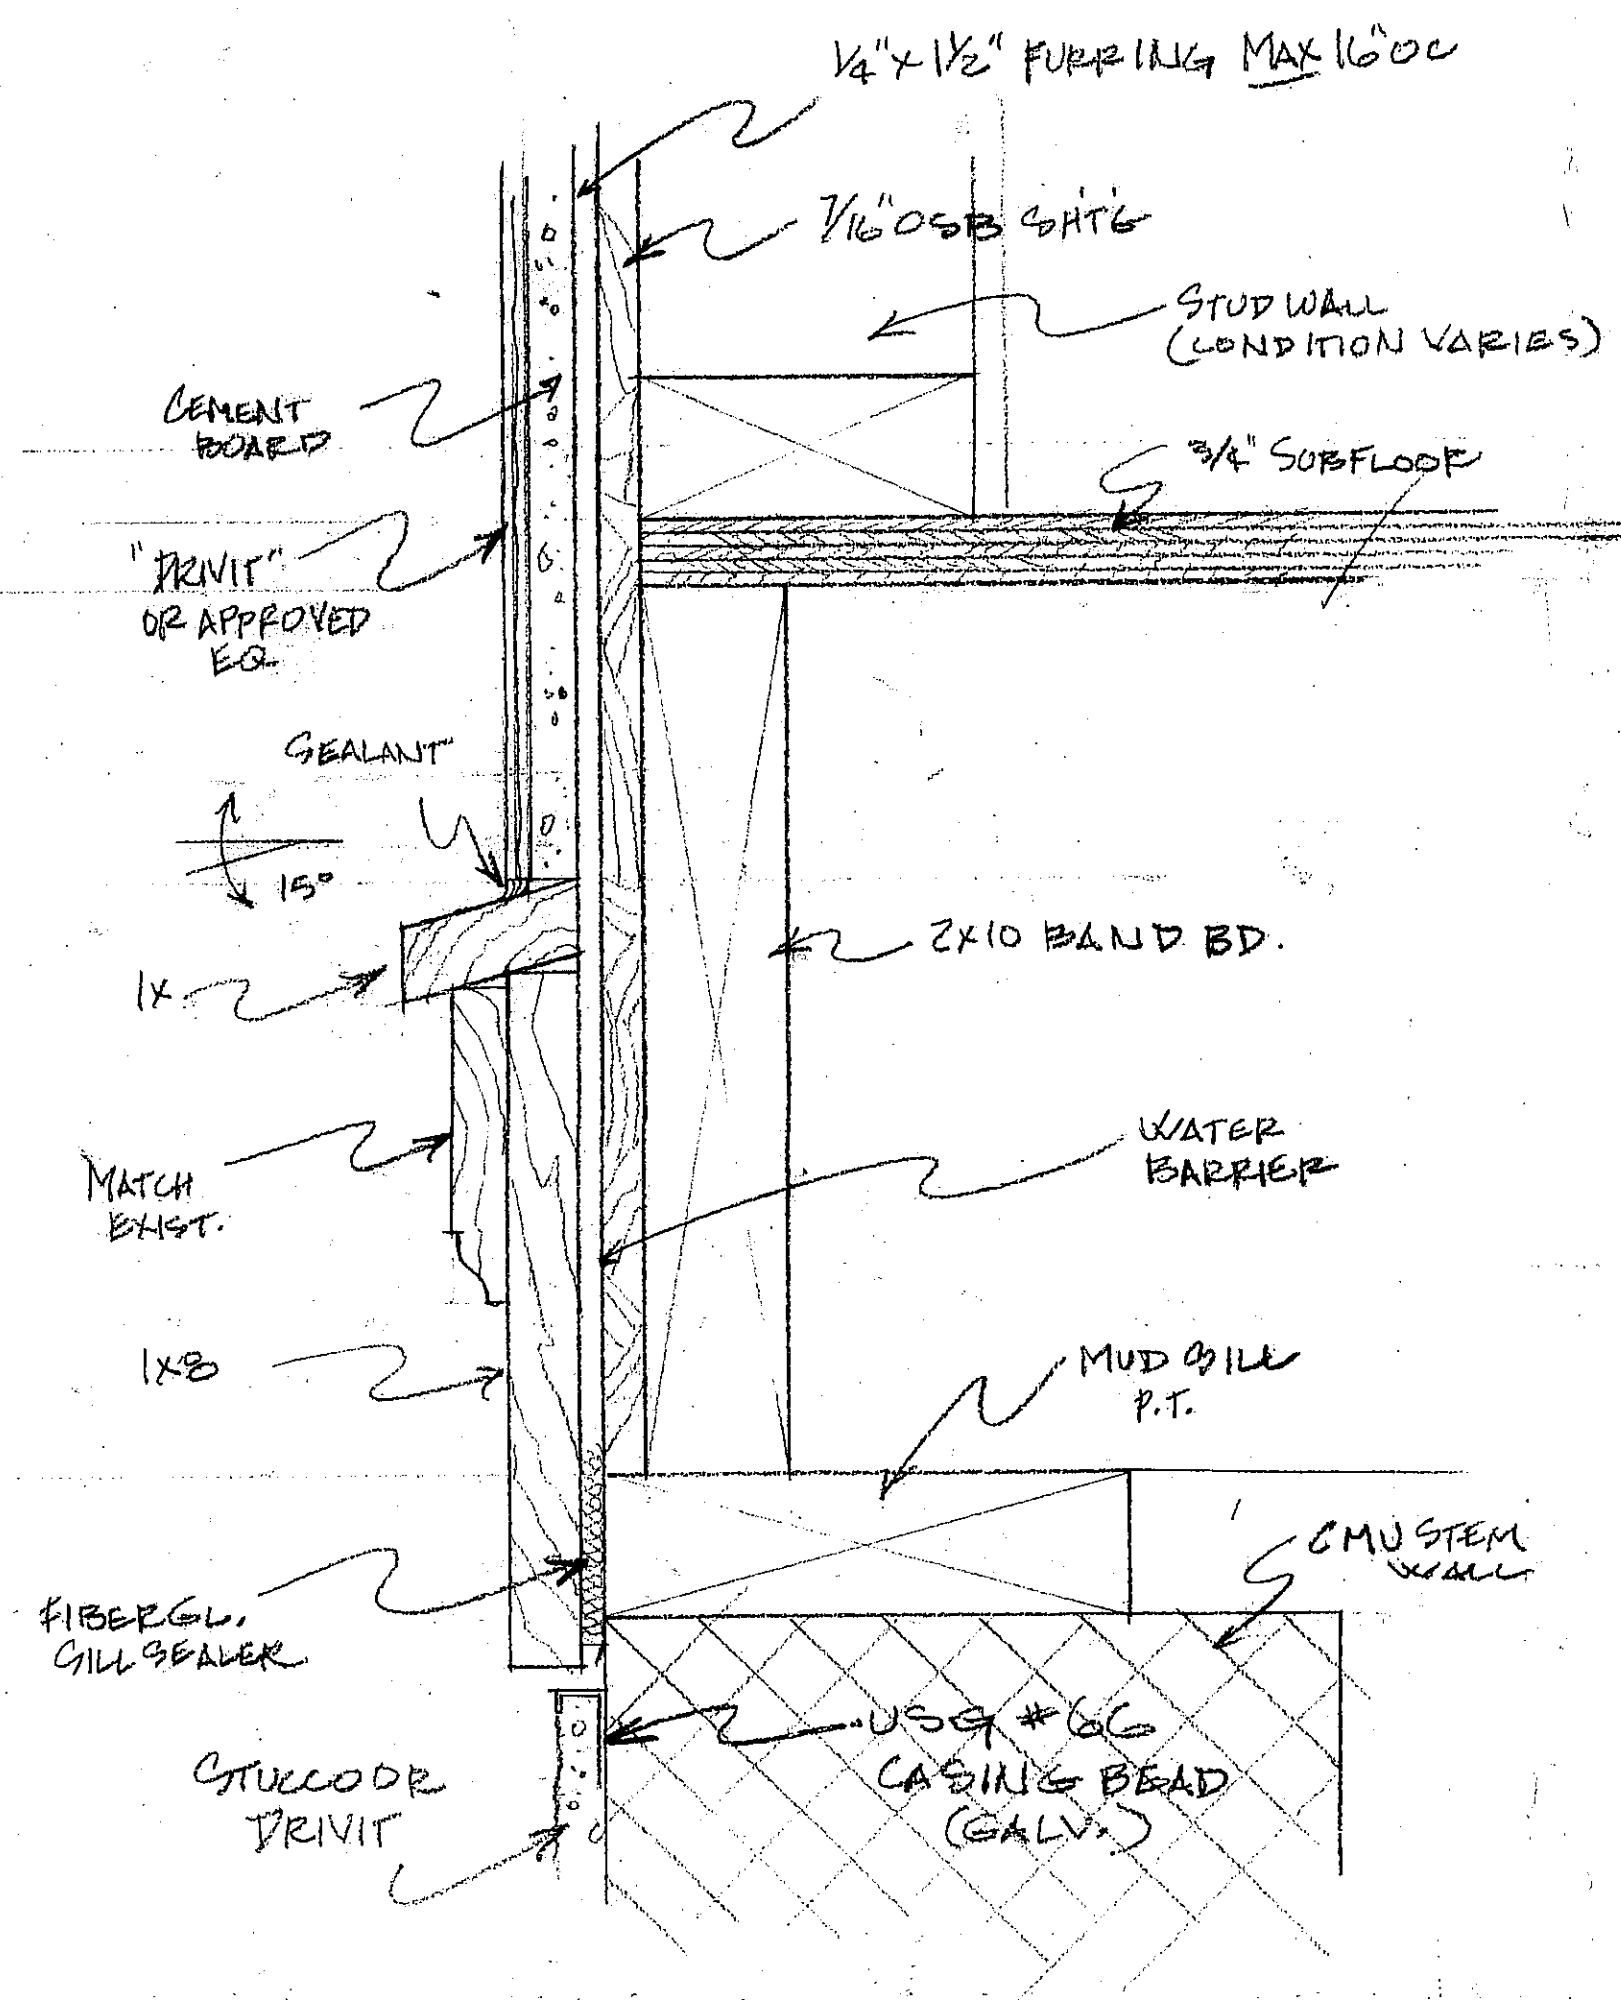 1/4" x 1 1/2" FURRING MAX 16" OC
7/16" OSB SHT'G
STUD WALL
(CONDITION VARIES)
CEMENT
BOARD
3/4" SUBFLOOR
"DRIVIT"
OR APPROVED
EQ
SEALANT
15°
2x10 BAND BD.
1x
WATER
BARRIER
MATCH
EXIST.
1x8
MUD SILL
P.T.
CMU STEM
WALL
FIBERGL.
SILL SEALER
USG #66
CASING BEAD
(GALV.)
STUCCO OR
DRIVIT